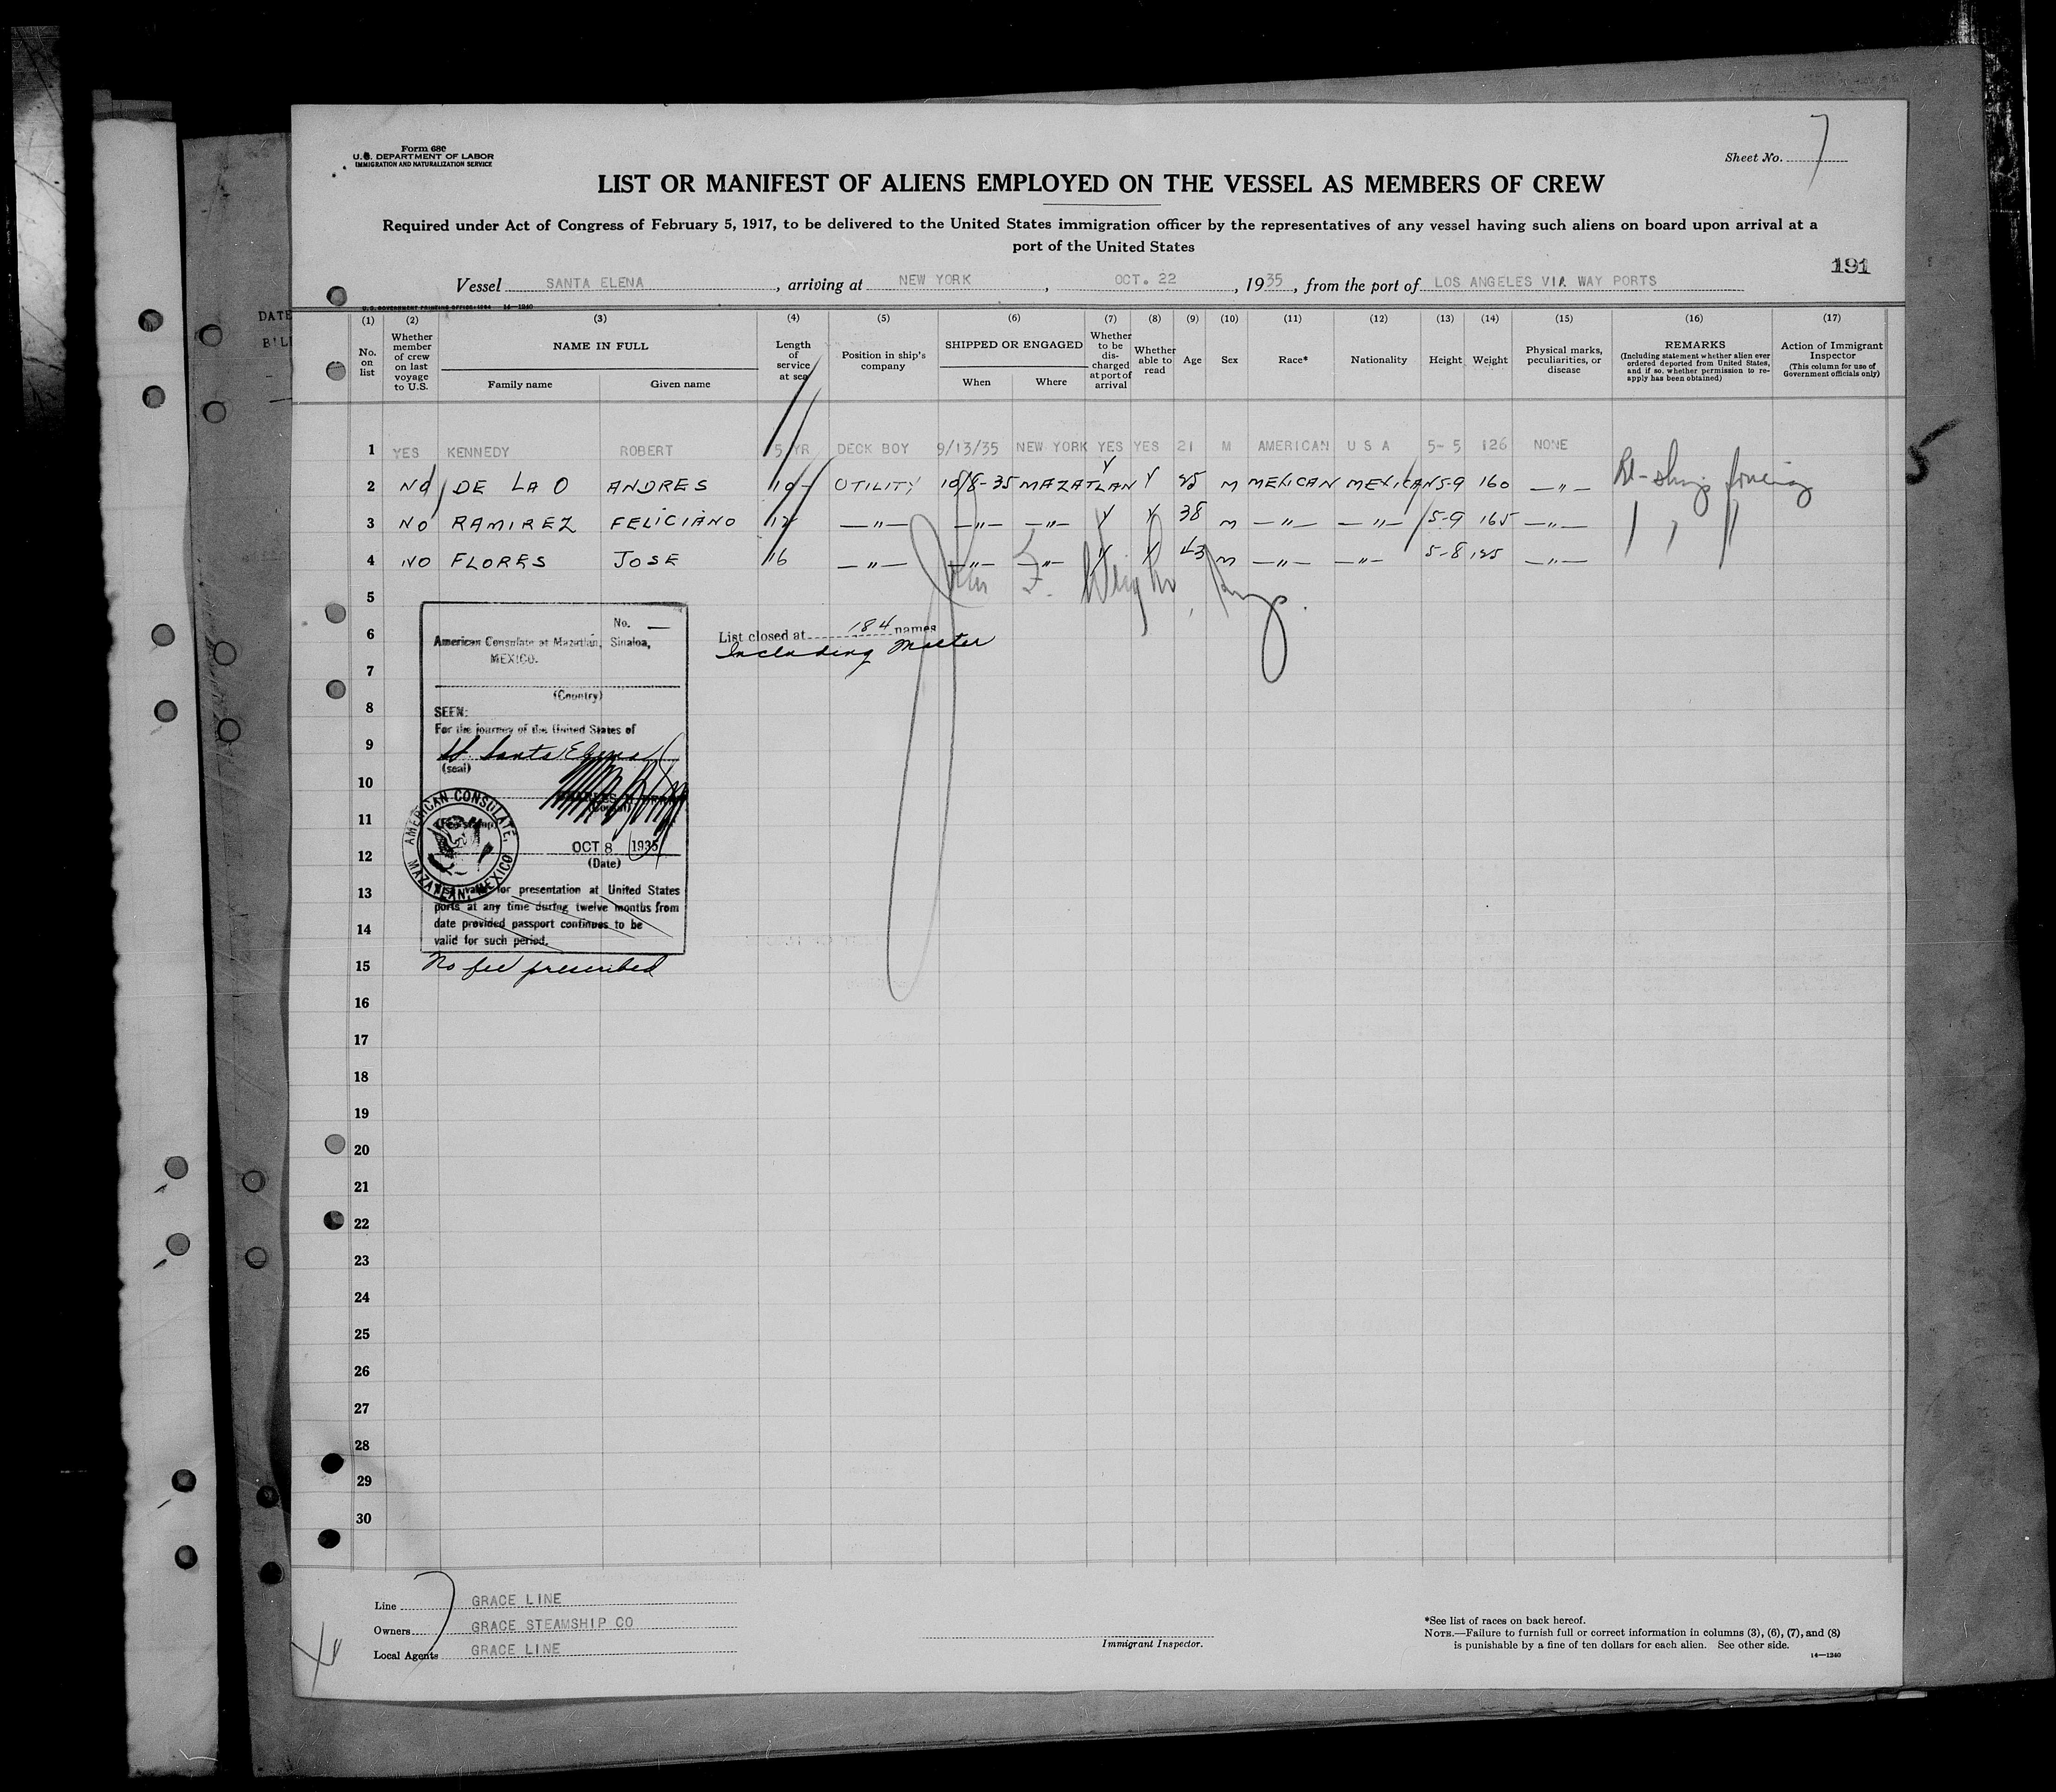 Form 680
U. S. DEPARTMENT OF LABOR
IMMIGRATION AND NATURALIZATION SERVICE
Sheet No. 7
LIST OR MANIFEST OF ALIENS EMPLOYED ON THE VESSEL AS MEMBERS OF CREW
Required under Act of Congress of February 5, 1917, to be delivered to the United States immigration officer by the representatives of any vessel having such aliens on board upon arrival at a
port of the United States
191
Vessel SANTA ELENA, arriving at NEW YORK, OCT. 22, 1935, from the port of LOS ANGELES VIA WAY PORTS
U. S. GOVERNMENT PRINTING OFFICE: 1934 14—1240
DATE
BILL
(1) (2) (3) (4) (5) (6) (7) (8) (9) (10) (11) (12) (13) (14) (15) (16) (17)
No. on list
Whether member of crew on last voyage to U.S.
NAME IN FULL
Family name
Given name
Length of service at sea
Position in ship's company
SHIPPED OR ENGAGED
When
Where
Whether to be discharged at port of arrival
Whether able to read
Age
Sex
Race*
Nationality
Height
Weight
Physical marks, peculiarities, or disease
REMARKS
(Including statement whether alien ever ordered deported from United States, and if so, whether permission to reapply has been obtained)
Action of Immigrant Inspector
(This column for use of Government officials only)
1 YES KENNEDY ROBERT 5 YR DECK BOY 9/13/35 NEW YORK YES YES 21 M AMERICAN U S A 5-5 126 NONE
5
2 NO DE LA O ANDRES 10 UTILITY 10/8-35 MAZATLAN Y Y 25 M MEXICAN MEXICAN 5-9 160 —"— Re-ship foreign
3 NO RAMIREZ FELICIANO 12 —"— —"— —"— Y Y 38 M —"— —"— 5-9 165 —"— " " "
4 NO FLORES JOSE 16 —"— —"— —"— Y Y 43 M —"— —"— 5-8 125 —"—
5
6
7
8
9
10
11
12
13
14
15
16
17
18
19
20
21
22
23
24
25
26
27
28
29
30
List closed at 184 names
Including Master
No. —
American Consulate at Mazatlan, Sinaloa,
MEXICO.
(Country)
SEEN:
For the journey of the United States of
SS. Santa Elena
(seal)
(Consul)
(Fee stamp)
OCT 8 1935
(Date)
AMERICAN CONSULATE, MAZATLAN, MEXICO
valid for presentation at United States
ports at any time during twelve months from
date provided passport continues to be
valid for such period.
No fee prescribed
Line GRACE LINE
Owners GRACE STEAMSHIP CO
Local Agents GRACE LINE
Immigrant Inspector.
*See list of races on back hereof.
NOTE.—Failure to furnish full or correct information in columns (3), (6), (7), and (8)
is punishable by a fine of ten dollars for each alien. See other side.
14—1240